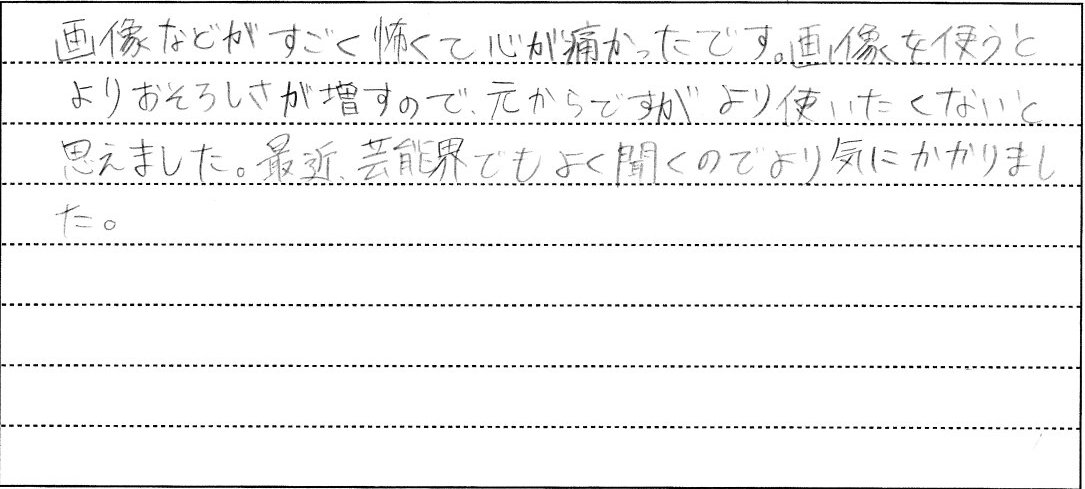 画像などがすごく怖くて心が痛かったです。画像を使うと
よりおそろしさが増すので、元からですがより使いたくないと
思えました。最近、芸能界でもよく聞くのでより気にかかりまし
た。